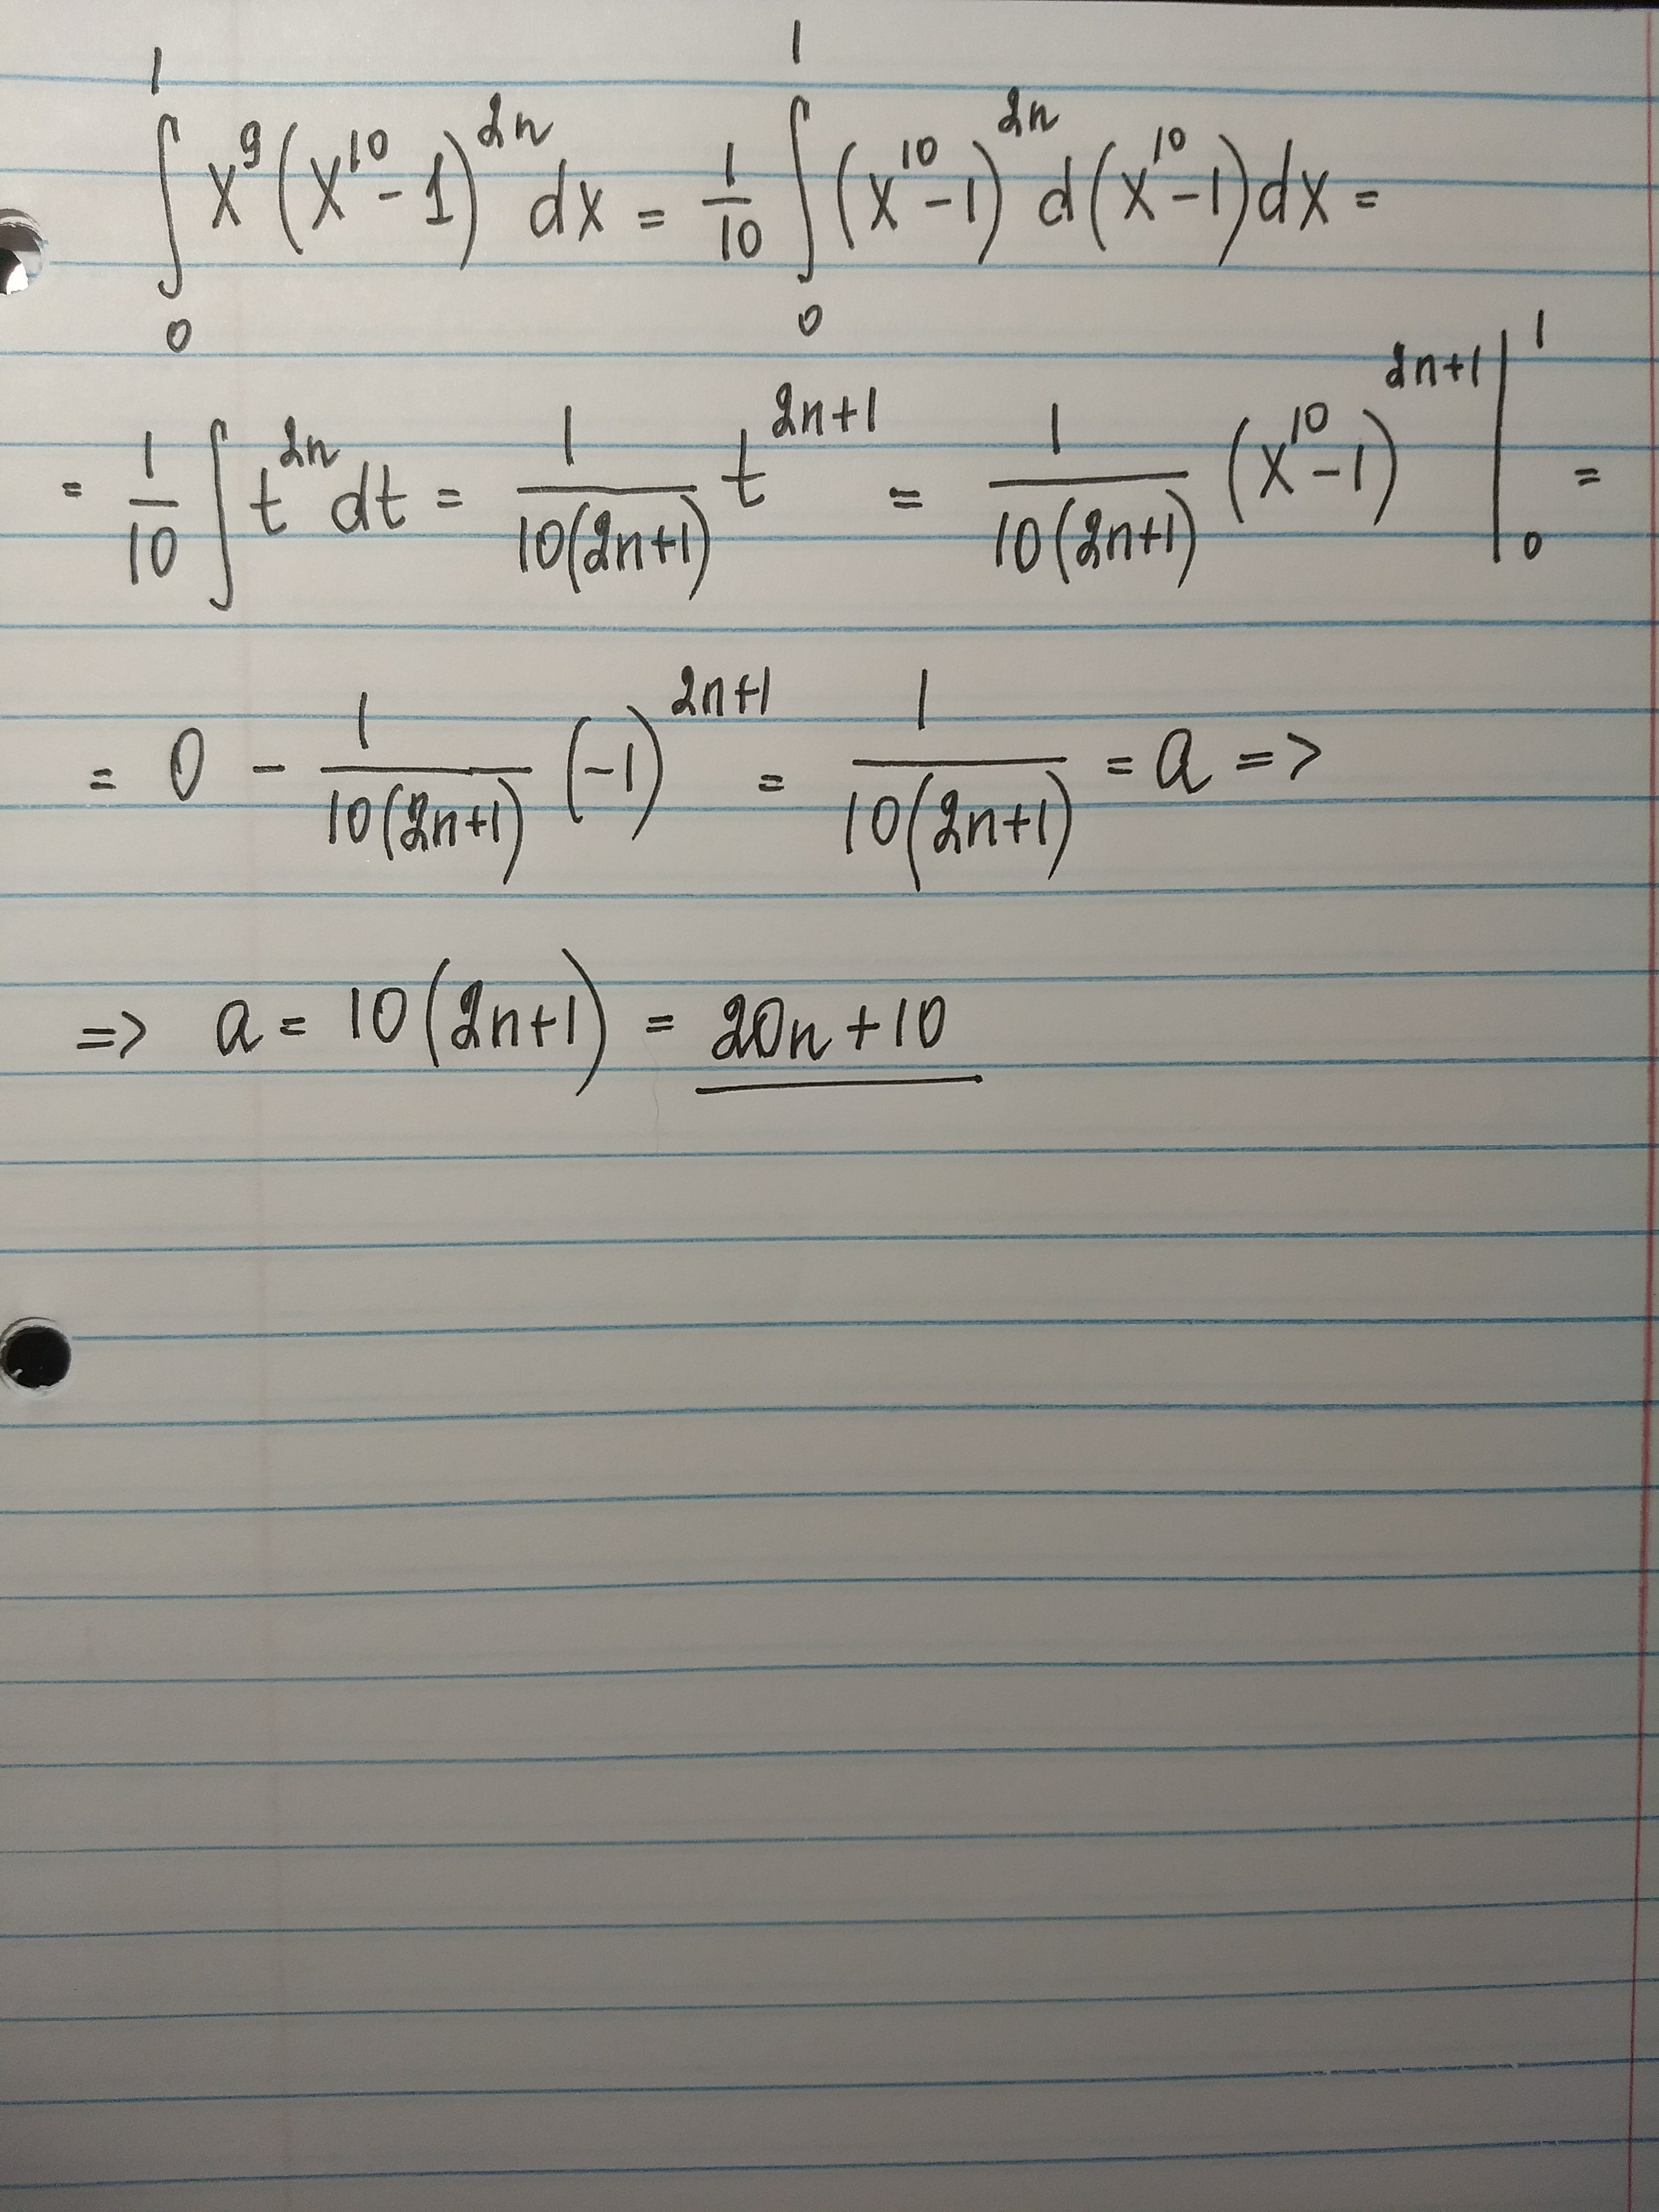 ∫₀¹ x⁹(x¹⁰-1)²ⁿ dx = 1/10 ∫₀¹ (x¹⁰-1)²ⁿ d(x¹⁰-1)dx =
= 1/10 ∫ t²ⁿ dt = 1/(10(2n+1)) t²ⁿ⁺¹ = 1/(10(2n+1)) (x¹⁰-1)²ⁿ⁺¹ |₀¹ =
= 0 - 1/(10(2n+1)) (-1)²ⁿ⁺¹ = 1/(10(2n+1)) = a =>
=> a = 10(2n+1) = 20n+10